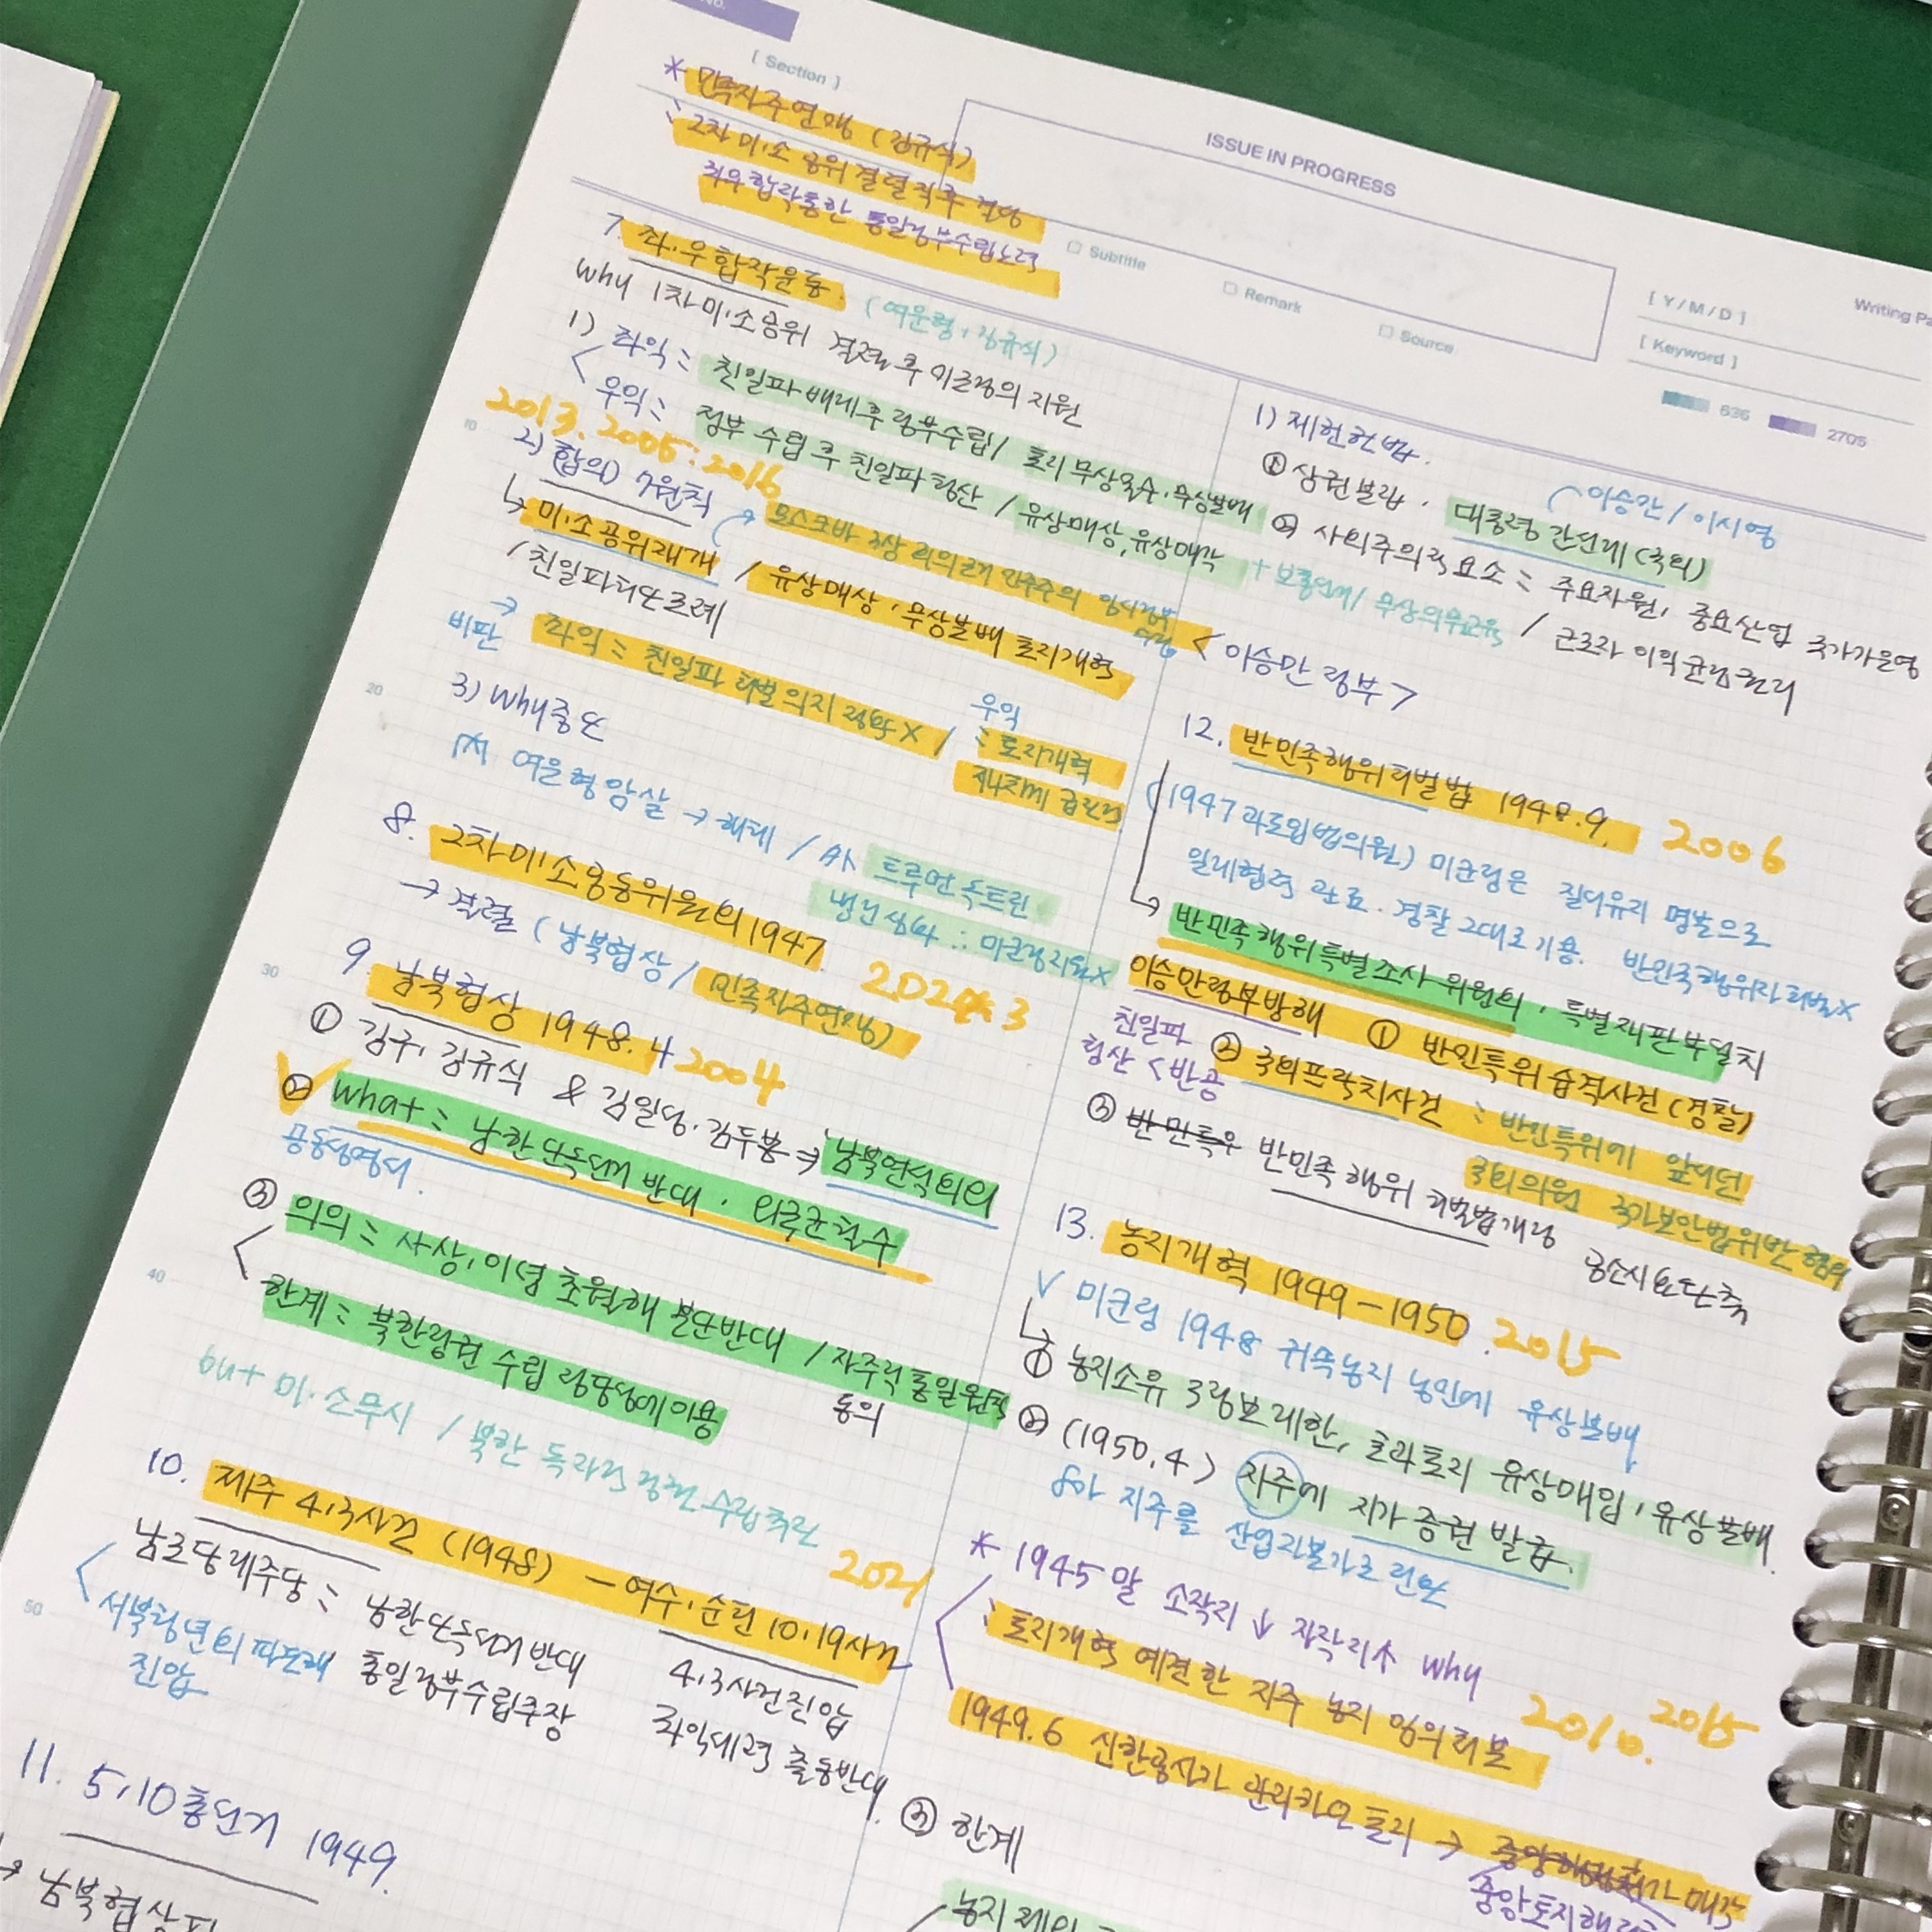 NO.
[ Section ]
ISSUE IN PROGRESS
* 민족자주연맹 (김규식)
: 2차 미·소 공위 결렬 직후 결성
좌우합작통한 통일정부수립노력
□ Subtitle
□ Remark
□ Source
[ Y / M / D ]
[ Keyword ]
Writing
636 2705
7. 좌·우합작운동. (여운형, 김규식)
why 1차 미·소공위 결렬 후 미군정의 지원
1) 좌익 : 친일파 배제후 정부수립/ 토지 무상몰수·무상분배
우익 : 정부 수립 후 친일파 청산 / 유상매상, 유상매각
2013. 2005. 2016
2) (합의) 7원칙
모스크바 3상 회의 민주주의 임시정부
↳ 미·소공위재개 / 유상매상·무상분배 토지개혁
/ 친일파처단조례
→ 비판 좌익 : 친일파 처벌 의지 정확X / 우익 : 토지개혁
3) Why중단
여운형 암살 → 해체 / 트루먼 독트린
냉전 심화 ∴ 미군정지원X
8. 2차 미·소공동위원회 1947.
→ 결렬 (남북협상 / 민족자주연맹)
9. 남북협상 1948.4 2004
① 김구, 김규식 & 김일성, 김두봉 ⇒ 남북연석회의
② what : 남한단독선거 반대 · 외국군철수
공동성명서.
③ 의의 : 사상, 이념 초월해 분단반대 / 자주적 통일원칙
동의
한계 : 북한정권 수립 정당성에 이용
but 미·소무시 / 북한 독자적 정권 수립 추진
10. 제주 4.3사건 (1948) - 여수·순천 10.19사건
2021
남로당 제주당 : 남한단독선거 반대
통일정부수립주장
서북청년회 파견해
진압
4.3사건진압
좌익세력 출동반대
11. 5.10총선거 1949.
→ 남북협상파
1) 제헌헌법.
① 삼권분립, 대통령 간선제 (국회)
이승만 / 이시영
② 사회주의적 요소 : 주요자원, 중요산업 국가가 운영
+ 보통선거/ 무상의무교육 / 근로자 이익균점권리
< 이승만 정부 >
12. 반민족행위처벌법 1948.9. 2006
(1947 과도입법의원) 미군정은 질서유지 명분으로
일제협력 관료·경찰 그대로 기용. 반민족행위자 처벌X
↳ 반민족행위특별조사 위원회, 특별재판부설치
이승만정부방해 ① 반민특위 습격사건 (경찰)
친일파
청산 < 반공
② 국회프락치사건 : 반민특위에 앞서던
국회의원 국가보안법위반 혐의
③ 반민족 행위 처벌법개정
공소시효단축
13. 농지개혁 1949-1950. 2015
V 미군정 1948 귀속농지 농민에 유상분배
① 농지소유 3정보제한, 초과토지 유상매입, 유상분배
② (1950.4) 지주에 지가 증권 발급.
지주를 산업자본가로 전환
* 1945 말 소작지↓ 자작지↑ why
: 토지개혁 예견한 지주 농지 임의처분
2010. 2015
1949.6 신한공사가 관리하던 토지 → 매각
③ 한계
농지 제외